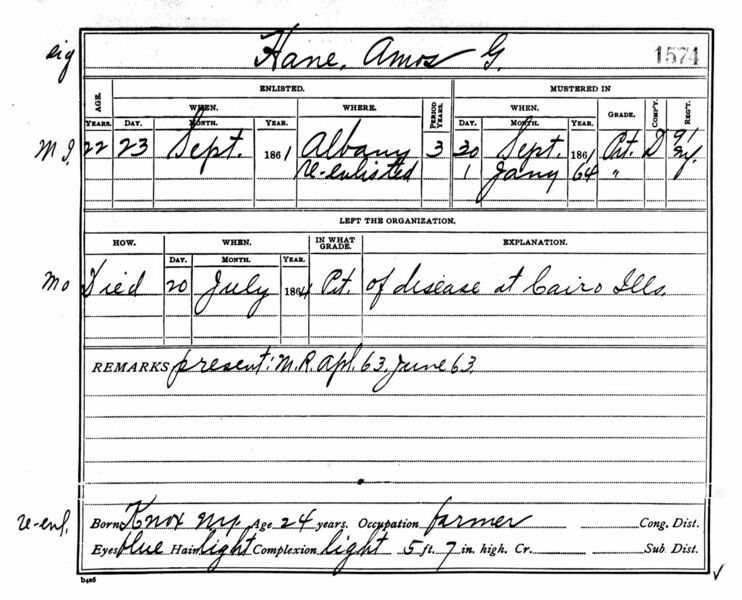 sig Hane, Amos G. 1574
ENLISTED. MUSTERED IN
AGE. WHEN. WHERE. PERIOD YEARS. WHEN. GRADE. COMP'Y. REG'T.
YEARS. DAY. MONTH. YEAR. DAY. MONTH. YEAR.
M I. 22 23 Sept. 1861 Albany 3 30 Sept. 1861 Pvt. D 91
re-enlisted 1 Jany 64 " NY.
LEFT THE ORGANIZATION.
HOW. WHEN. IN WHAT GRADE. EXPLANATION.
DAY. MONTH. YEAR.
Mo Died 20 July 1864 Pvt. of disease at Cairo Ills.
REMARKS present: M.R. Apl. 63. June 63.
re-enl. Born Knox NY. Age 24 years. Occupation farmer Cong. Dist.
Eyes blue Hair light Complexion light 5 ft. 7 in. high. Cr. Sub Dist.
b426